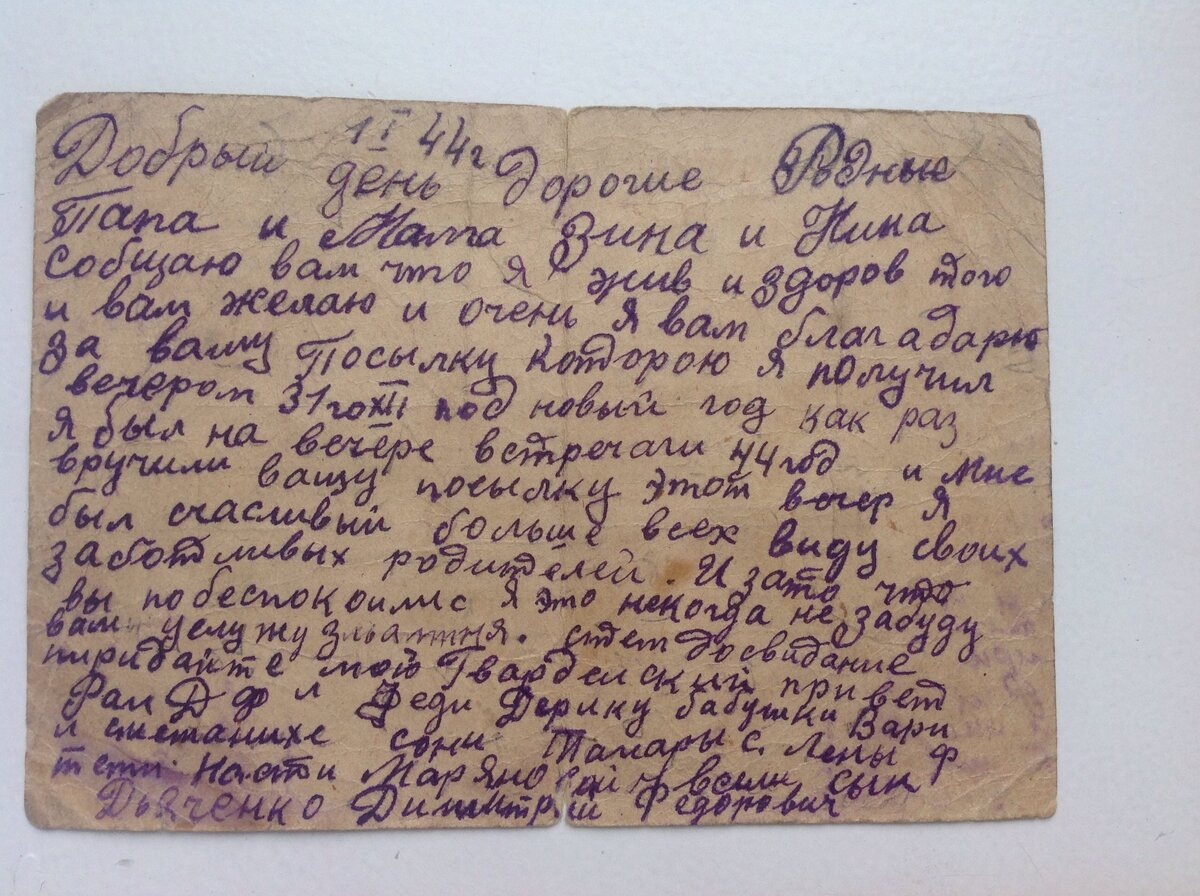 1 I 44 г
Добрый день дорогие Родные
Папа и Мама Зина и Нина
Собщаю вам что я жив и здоров того
и вам желаю и очень я вам благадарю
за вашу Посылку которою я получил
вечером 31го XII под новый год как раз
я был на вечере встречали 44 год и мне
вручили вашу посылку этот вечер я
был счасливый больше всех виду своих
заботливых родителей. И зато что
вы побеспокоились я это некогда не забуду
вам услужу стем досвидание
пиридайте мой Гвардейский привет
Феди бабушки Вари
и Сони Тамары с. Лены ф
Насти всем сын
Дьяченко Димитрий Федорович